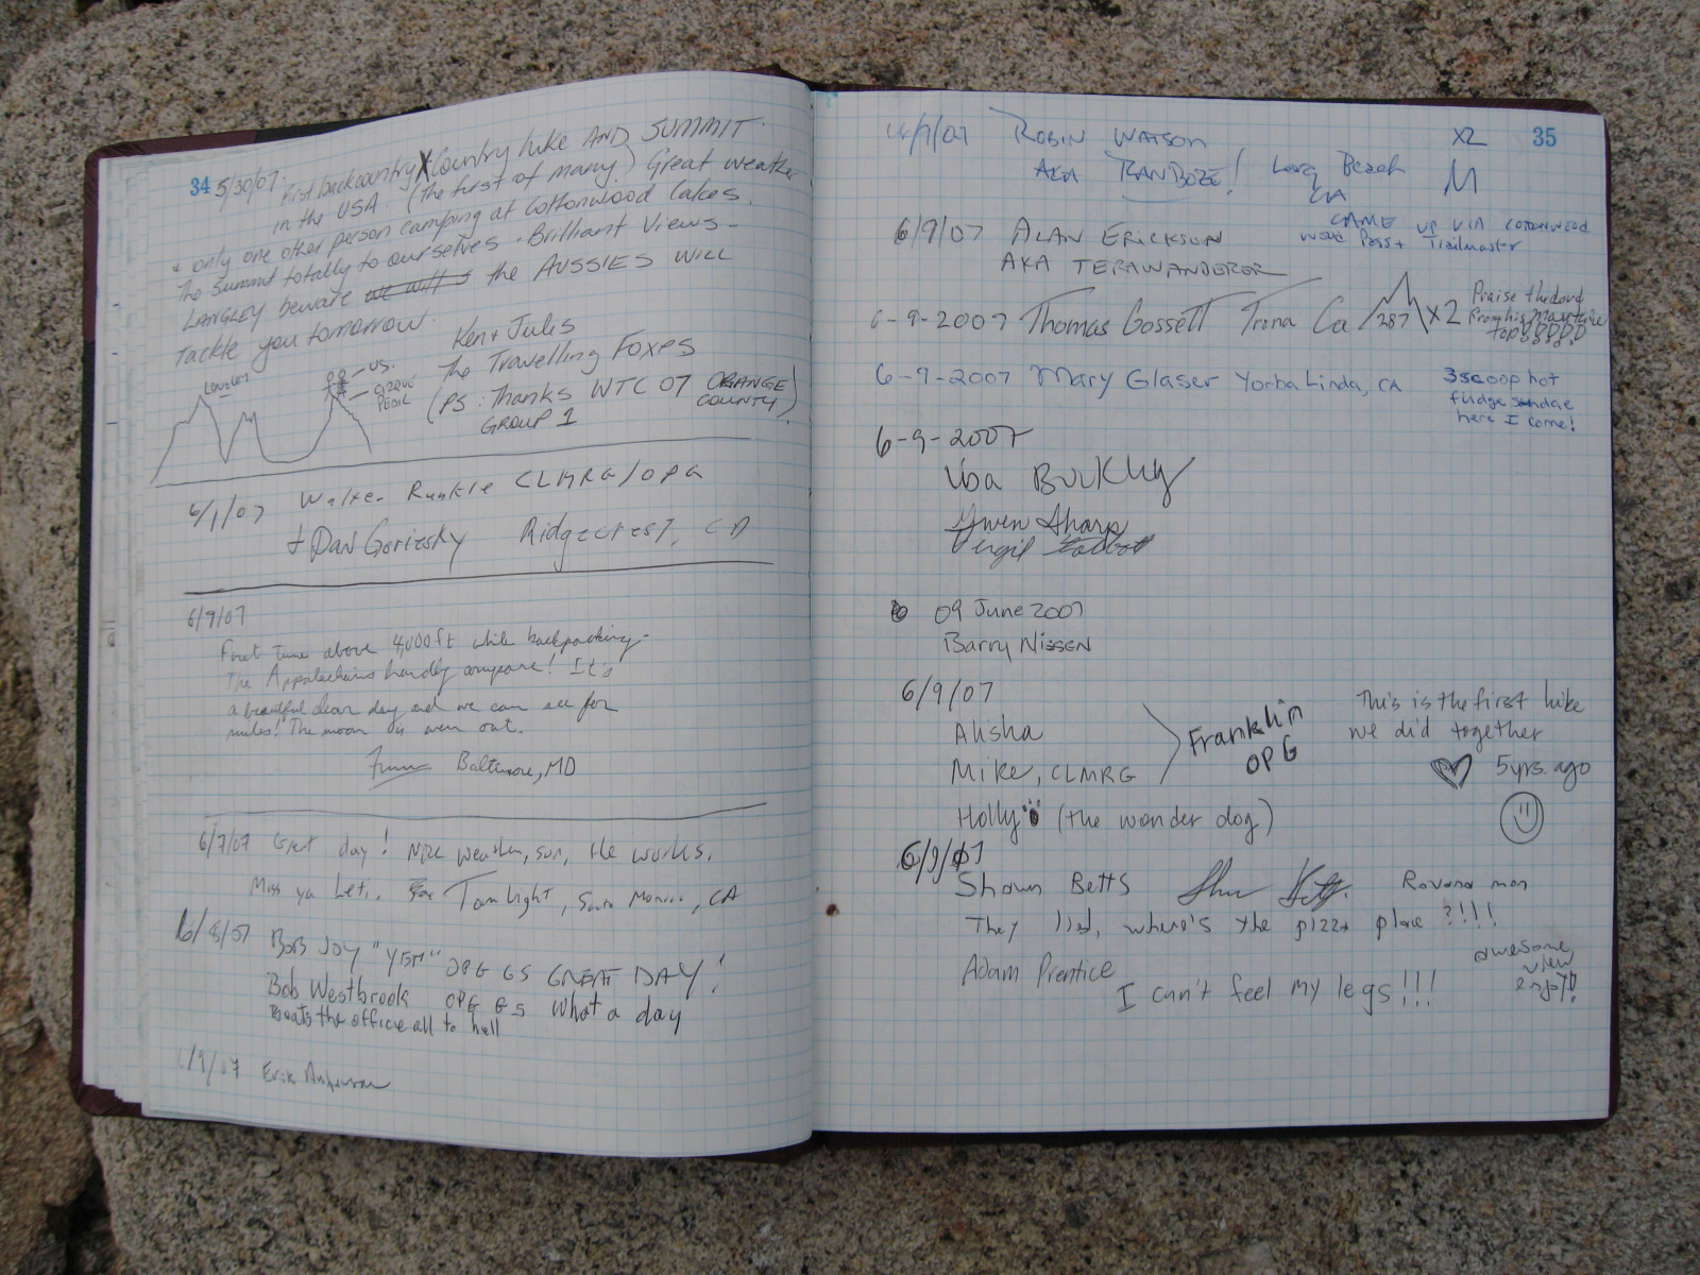 34 5/30/07. First backcountry X Country hike AND SUMMIT.
in the USA. (The first of many) Great weather
* only one other person camping at Cottonwood lakes.
The Summit totally to ourselves. Brilliant Views -
LANGLEY beware we will the AUSSIES WILL
Tackle you tomorrow.
Ken & Jules
The Travelling FOXES
(PS: Thanks WTC 07 ORANGE COUNTY)
GROUP 1
Langley
US.
CIRQUE
PEAK
6/1/07 Walter Runkle CLMRG/OPG
+ Dan Gorizsky Ridgecrest, CA
6/9/07
First time above 4,000ft while backpacking -
The Appalachians hardly compare! It's
a beautiful clear day and we can see for
miles! The moon is even out.
Baltimore, MD
6/7/07 Great day! Nice weather, sun, the works.
Miss ya Leti. Tom Light, Santa Monica, CA
6/8/07 BOB JOY "YETI" OPG GS GREAT DAY!
Bob Westbrook OPG GS What a day
Beats the office all to hell
6/9/07 Erik Anderson
35
6/9/07 ROBIN WATSON X2
AKA RANBOZE! Long Beach M
CA
CAME UP VIA COTTONWOOD
Pass + Trailmaster
6/9/07 ALAN ERICKSON
AKA TERAWANDERER
6-9-2007 Thomas Gossett Trona Ca 287 X2 Praise the Lord
from his mountain
top!!!!!
6-9-2007 Mary Glaser Yorba Linda, CA 3 scoop hot
fudge sundae
here I come!
6-9-2007
Buckley
Gwen Sharp
Vergil Talbot
09 June 2007
Barry Nissen
6/9/07
Alisha
Mike, CLMRG
Franklin
OPG
This is the first hike
we did together
5 yrs. ago
Holly (the wonder dog)
6/9/07
Shawn Betts
They lied, where's the pizza place?!!!!
Adam Prentice
I can't feel my legs!!!
awesome
view
enjoy!